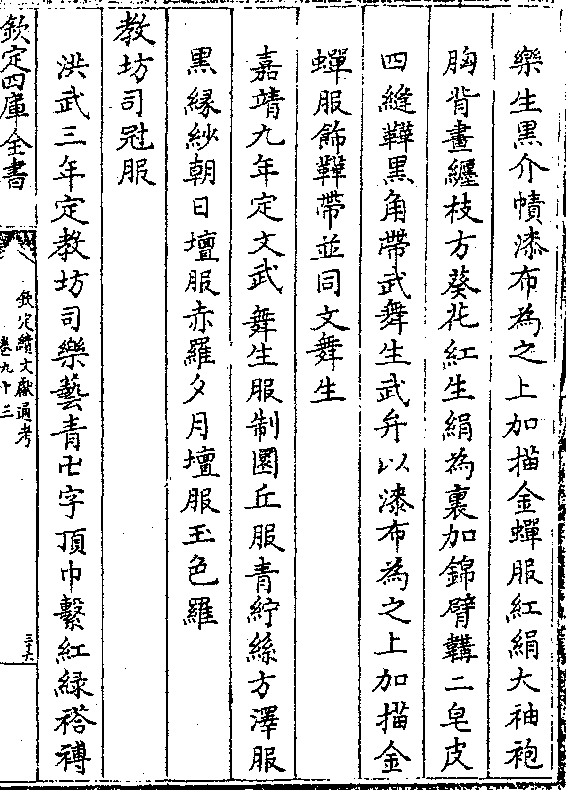 樂生黒介幘漆布為之上加描金蟬服紅絹大袖袍
胸背畫纒枝方葵花紅生絹為裏加錦臂韝二皂皮
四縫鞾黒角帶武舞生武弁以漆布為之上加描金
蟬服飾鞾帶並同文舞生
嘉靖九年定文武舞生服制圜丘服青紵絲方澤服
黒縁紗朝日壇服赤羅夕月壇服玉色羅
教坊司冠服
洪武三年定教坊司樂藝青卍字頂巾繫紅緑褡䙏
欽定四庫全書
欽定續文獻通考
卷九十三
三六